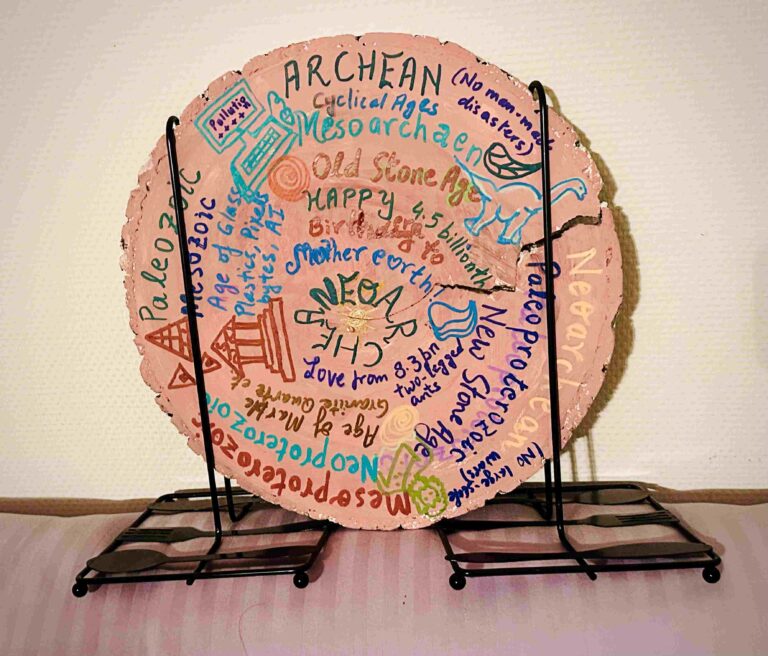 ARCHEAN
(No man-made
disasters)
Cyclical Ages
Mesoarchaen
Pollutio
Old Stone Age
HAPPY 4.5 billionth
Birthday to
Mother earth
NEOARCHEAN
Love from 8.3bn
two-legged
ants
Paleozoic
Mesozoic
Age of Glass
Plastics, Pixels
bytes, AI
Age of Marble
Granite Quartz etc
Neoproterozoic
Mesoproterozoic
New Stone Age
Paleoproterozoic
Neoarchean
(No large-scale
wars)